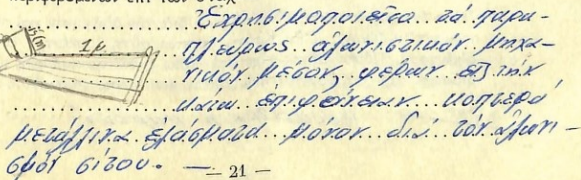 περιφερομένων ἐπὶ τῶν σταχ
Ἐχρησιμοποιεῖτο τό παρα-
35 cm 1μ. πλεύρως ἁλωνιστικόν μηχα-
νικόν μέσον, φέρων εἰς τήν
κάτω ἐπιφάνειαν κοπτερά
μετάλλινα ἐλάσματα μόνον διά τόν ἁλωνι-
σμόν σίτου. —
— 21 —